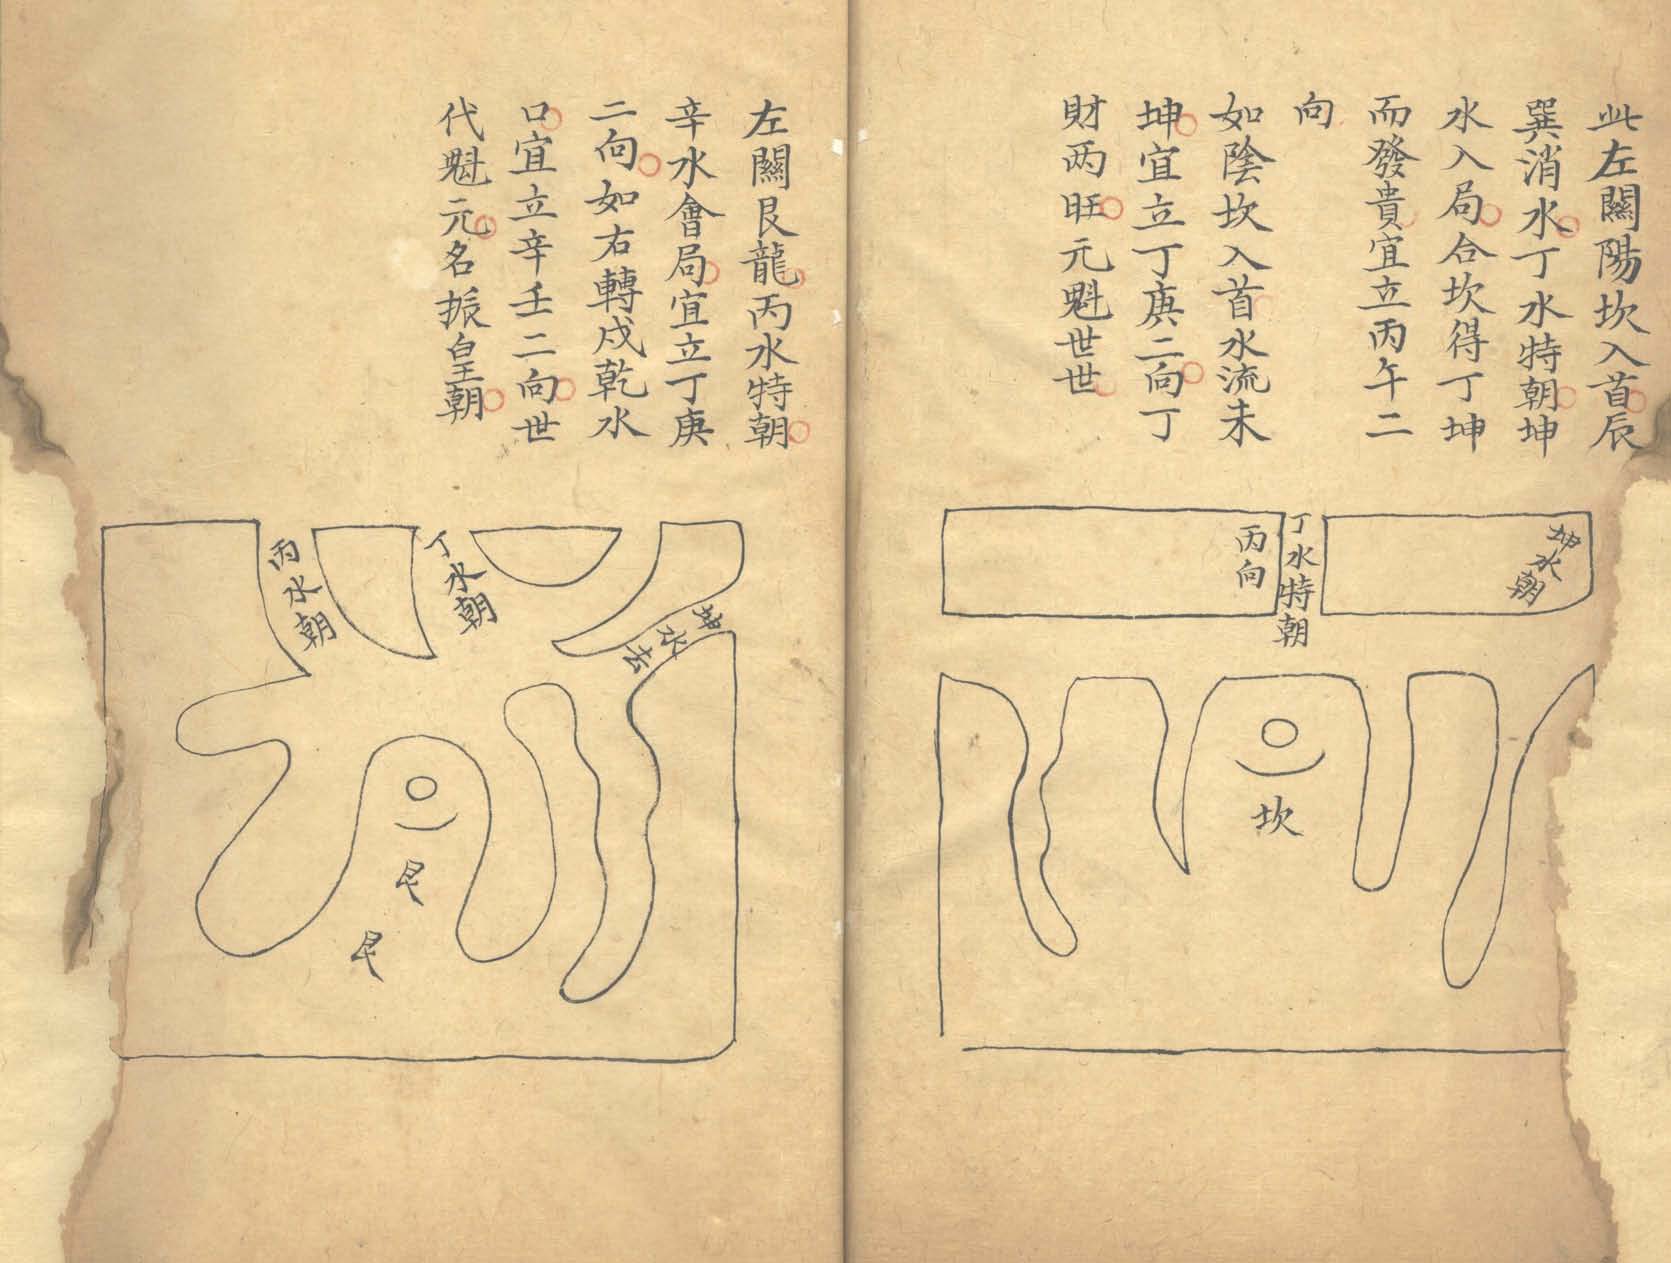 此左關陽坎入首辰
巽消水丁水特朝坤
水入局合坎得丁坤
而發貴宜立丙午二
向
如陰坎入首水流未
坤宜立丁庚二向丁
財两旺元魁世世
坤水朝
丁水特朝
丙向
坎
左關艮龍丙水特朝
辛水會局宜立丁庚
二向如右轉戌乾水
口宜立辛壬二向世
代魁元名振皇朝
坤水去
丁水朝
丙水朝
艮
艮